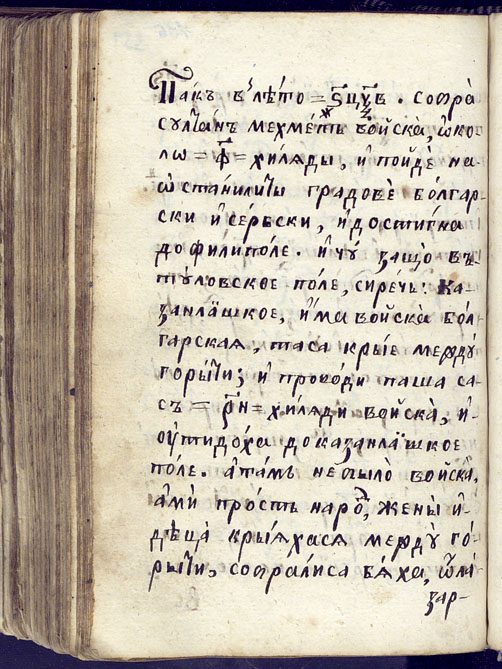 Пакъ в' лѣто = ҂ѕцѯв. собра
султанъ мехметь войска, ѡко-
лѡ = ф҃ = хиляды, и пойде на
ѡстанилиты градове болгар-
ски и сербски, и достигна
до филиполе. и чу защо въ
туловское поле, сиречь: ка-
занлашкое, има войска бол-
гарская, таса крые между
горыти; и проводи паша са
съ = р҃н = хиляди войска, и
ѹтидоха до казанлашкое
поле. а тамъ не было войска,
ами простъ народ, жены и
дѣца крыяхася между го-
рыти, собралиса бяха, ѿ ла-
зар-